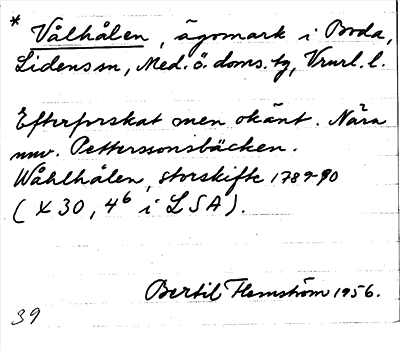 * Vålhålen, ägomark i Boda,
Lidens sn, Med.ö. doms. tg, Vnrl. l.
Efterforskat men okänt. Nära
nuv. Petterssonsbäcken.
Wåhlhålen, storskifte 1789-90
(X 30, 4⁶ i LSA).
Bertil Flemström 1956.
39